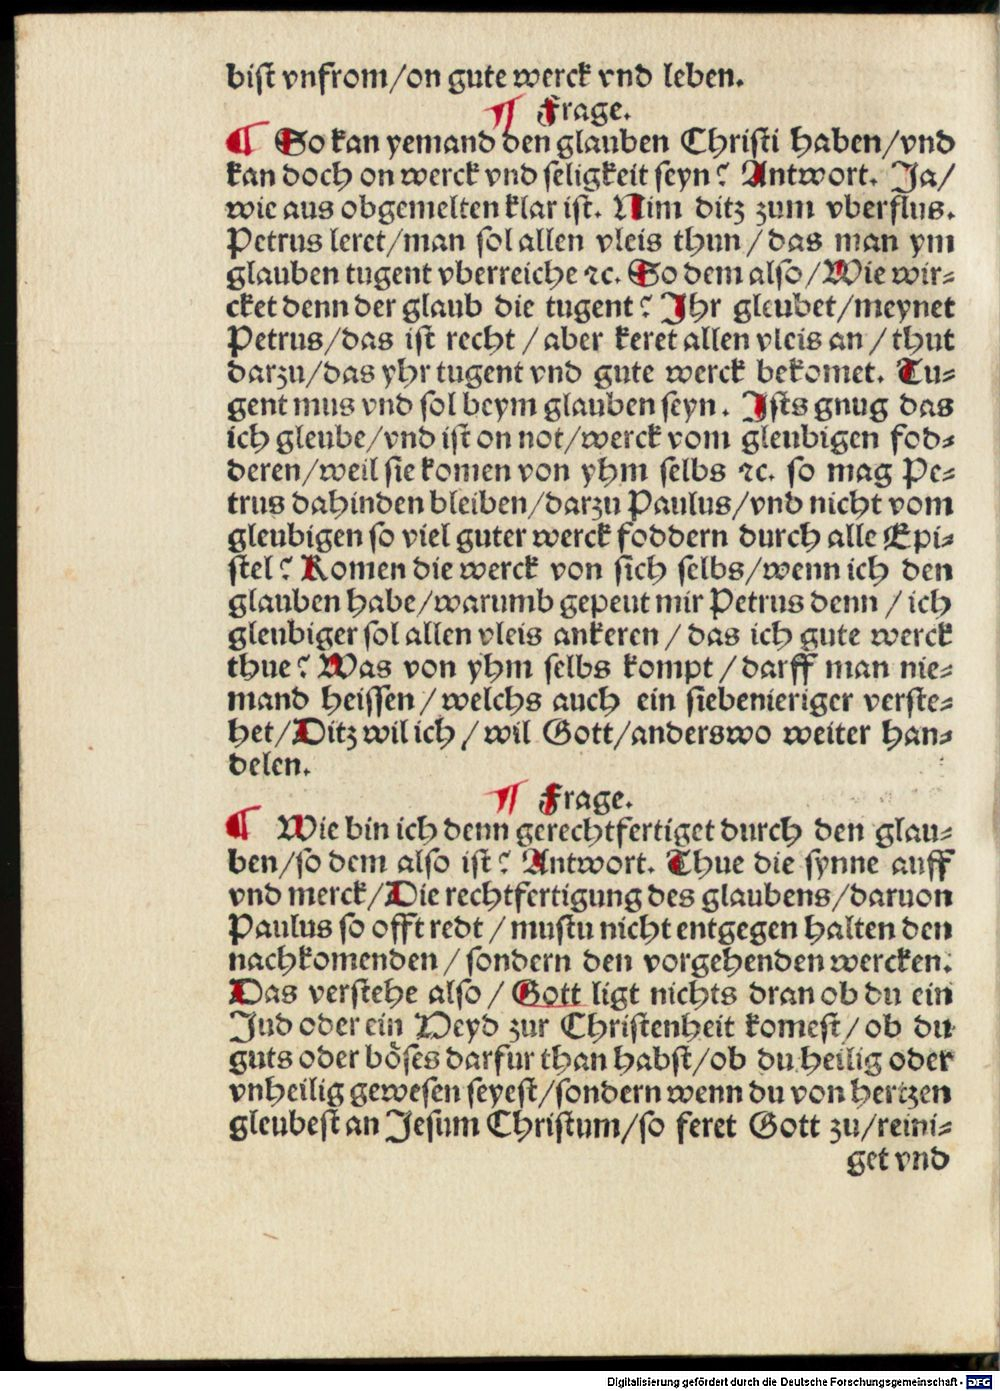 bist vnfrom/on gute werck vnd leben.
¶ Frage.
¶ So kan yemand den glauben Christi haben/vnd
kan doch on werck vnd seligkeit seyn? Antwort. Ja/
wie aus obgemelten klar ist. Nim ditz zum vberflus.
Petrus leret/man sol allen vleis thun/das man ym
glauben tugent vberreiche ⁊c. So dem also/Wie wir⸗
cket denn der glaub die tugent? Ihr gleubet/meynet
Petrus/das ist recht/aber keret allen vleis an/thut
darzu/das yhr tugent vnd gute werck bekomet. Tu⸗
gent mus vnd sol beym glauben seyn. Ists gnug das
ich gleube/vnd ist on not/werck vom gleubigen fod⸗
deren/weil sie komen von yhm selbs ⁊c. so mag Pe⸗
trus dahinden bleiben/darzu Paulus/vnd nicht vom
gleubigen so viel guter werck foddern durch alle Epi⸗
stel? Komen die werck von sich selbs/wenn ich den
glauben habe/warumb gepeut mir Petrus denn/ich
gleubiger sol allen vleis ankeren/das ich gute werck
thue? Was von yhm selbs kompt/darff man nie⸗
mand heissen/welchs auch ein siebenieriger verste⸗
het/Ditz wil ich/wil Gott/anderswo weiter han⸗
delen.
¶ Frage.
¶ Wie bin ich denn gerechtfertiget durch den glau⸗
ben/so dem also ist? Antwort. Thue die synne auff
vnd merck/Die rechtfertigung des glaubens/daruon
Paulus so offt redt/mustu nicht entgegen halten den
nachkomenden/sondern den vorgehenden wercken.
Das verstehe also/Gott ligt nichts dran ob du ein
Jud oder ein Heyd zur Christenheit komest/ob du
guts oder böses darfur than habst/ob du heilig oder
vnheilig gewesen seyest/sondern wenn du von hertzen
gleubest an Jesum Christum/so feret Gott zu/reini⸗
get vnd
Digitalisierung gefördert durch die Deutsche Forschungsgemeinschaft - DFG